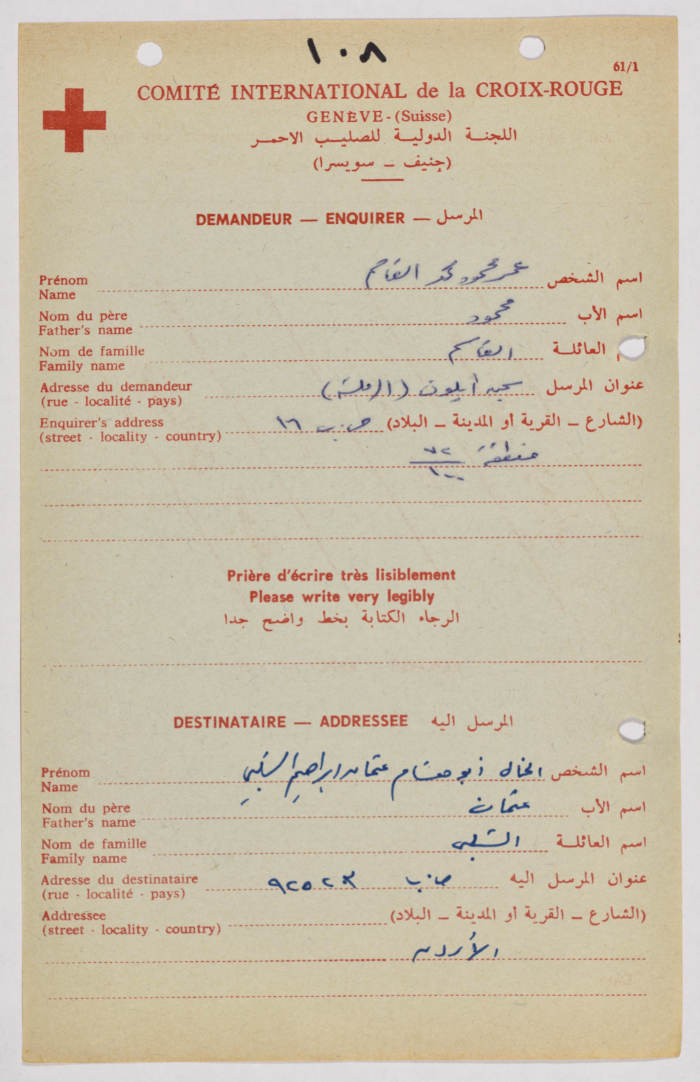 ١٠٨
61/1
COMITÉ INTERNATIONAL de la CROIX-ROUGE
GENÈVE - (Suisse)
اللجنة الدولية للصليب الاحمر
(جنيف – سويسرا)
DEMANDEUR — ENQUIRER — المرسل
Prénom عمر محمود محمد القاسم اسم الشخص
Name
Nom du père محمود اسم الأب
Father's name
Nom de famille القاسم العائلة
Family name
Adresse du demandeur سجن أيلون (الرملة) عنوان المرسل
(rue - localité - pays)
Enquirer's address ص.ب ١٦ (الشارع – القرية أو المدينة – البلاد)
(street - locality - country)
منطقة ٧٢
١٠٠
Prière d'écrire très lisiblement
Please write very legibly
الرجاء الكتابة بخط واضح جدا
DESTINATAIRE — ADDRESSEE المرسل اليه
Prénom الخال أبو هشام عثمان ابراهيم الشلبي اسم الشخص
Name
Nom du père عثمان اسم الأب
Father's name
Nom de famille الشلبي اسم العائلة
Family name
Adresse du destinataire ص.ب عنوان المرسل اليه
(rue - localité - pays)
Addressee (الشارع – القرية أو المدينة – البلاد)
(street - locality - country)
الأردن